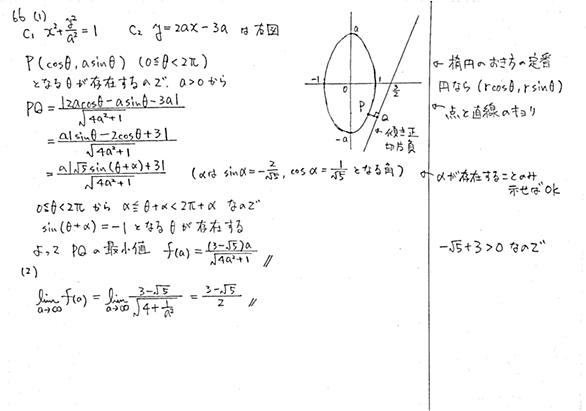 66 (1)
C₁ x²+y²/a²=1 C₂ y=2ax-3a は右図
P(cosθ, asinθ) (0≦θ<2π)
となるθが存在するので a>0から
PQ=|2acosθ-asinθ-3a|/√(4a²+1)
=a|sinθ-2cosθ+3|/√(4a²+1)
=a|√5sin(θ+α)+3|/√(4a²+1) (αは sinα=-2/√5, cosα=1/√5 となる角)
0≦θ<2π から α≦θ+α<2π+α なので
sin(θ+α)=-1 となるθが存在する
よって PQの最小値 f(a)=(3-√5)a/√(4a²+1) //
(2)
lim a→∞ f(a)=lim a→∞ (3-√5)/√(4+1/a²)=(3-√5)/2 //
a
-1 0 1 3/2
P Q
-a
傾き正
切片負
楕円のおき方の定番
円なら(rcosθ, rsinθ)
点と直線のキョリ
αが存在することのみ
示せばOK
-√5+3>0 なので